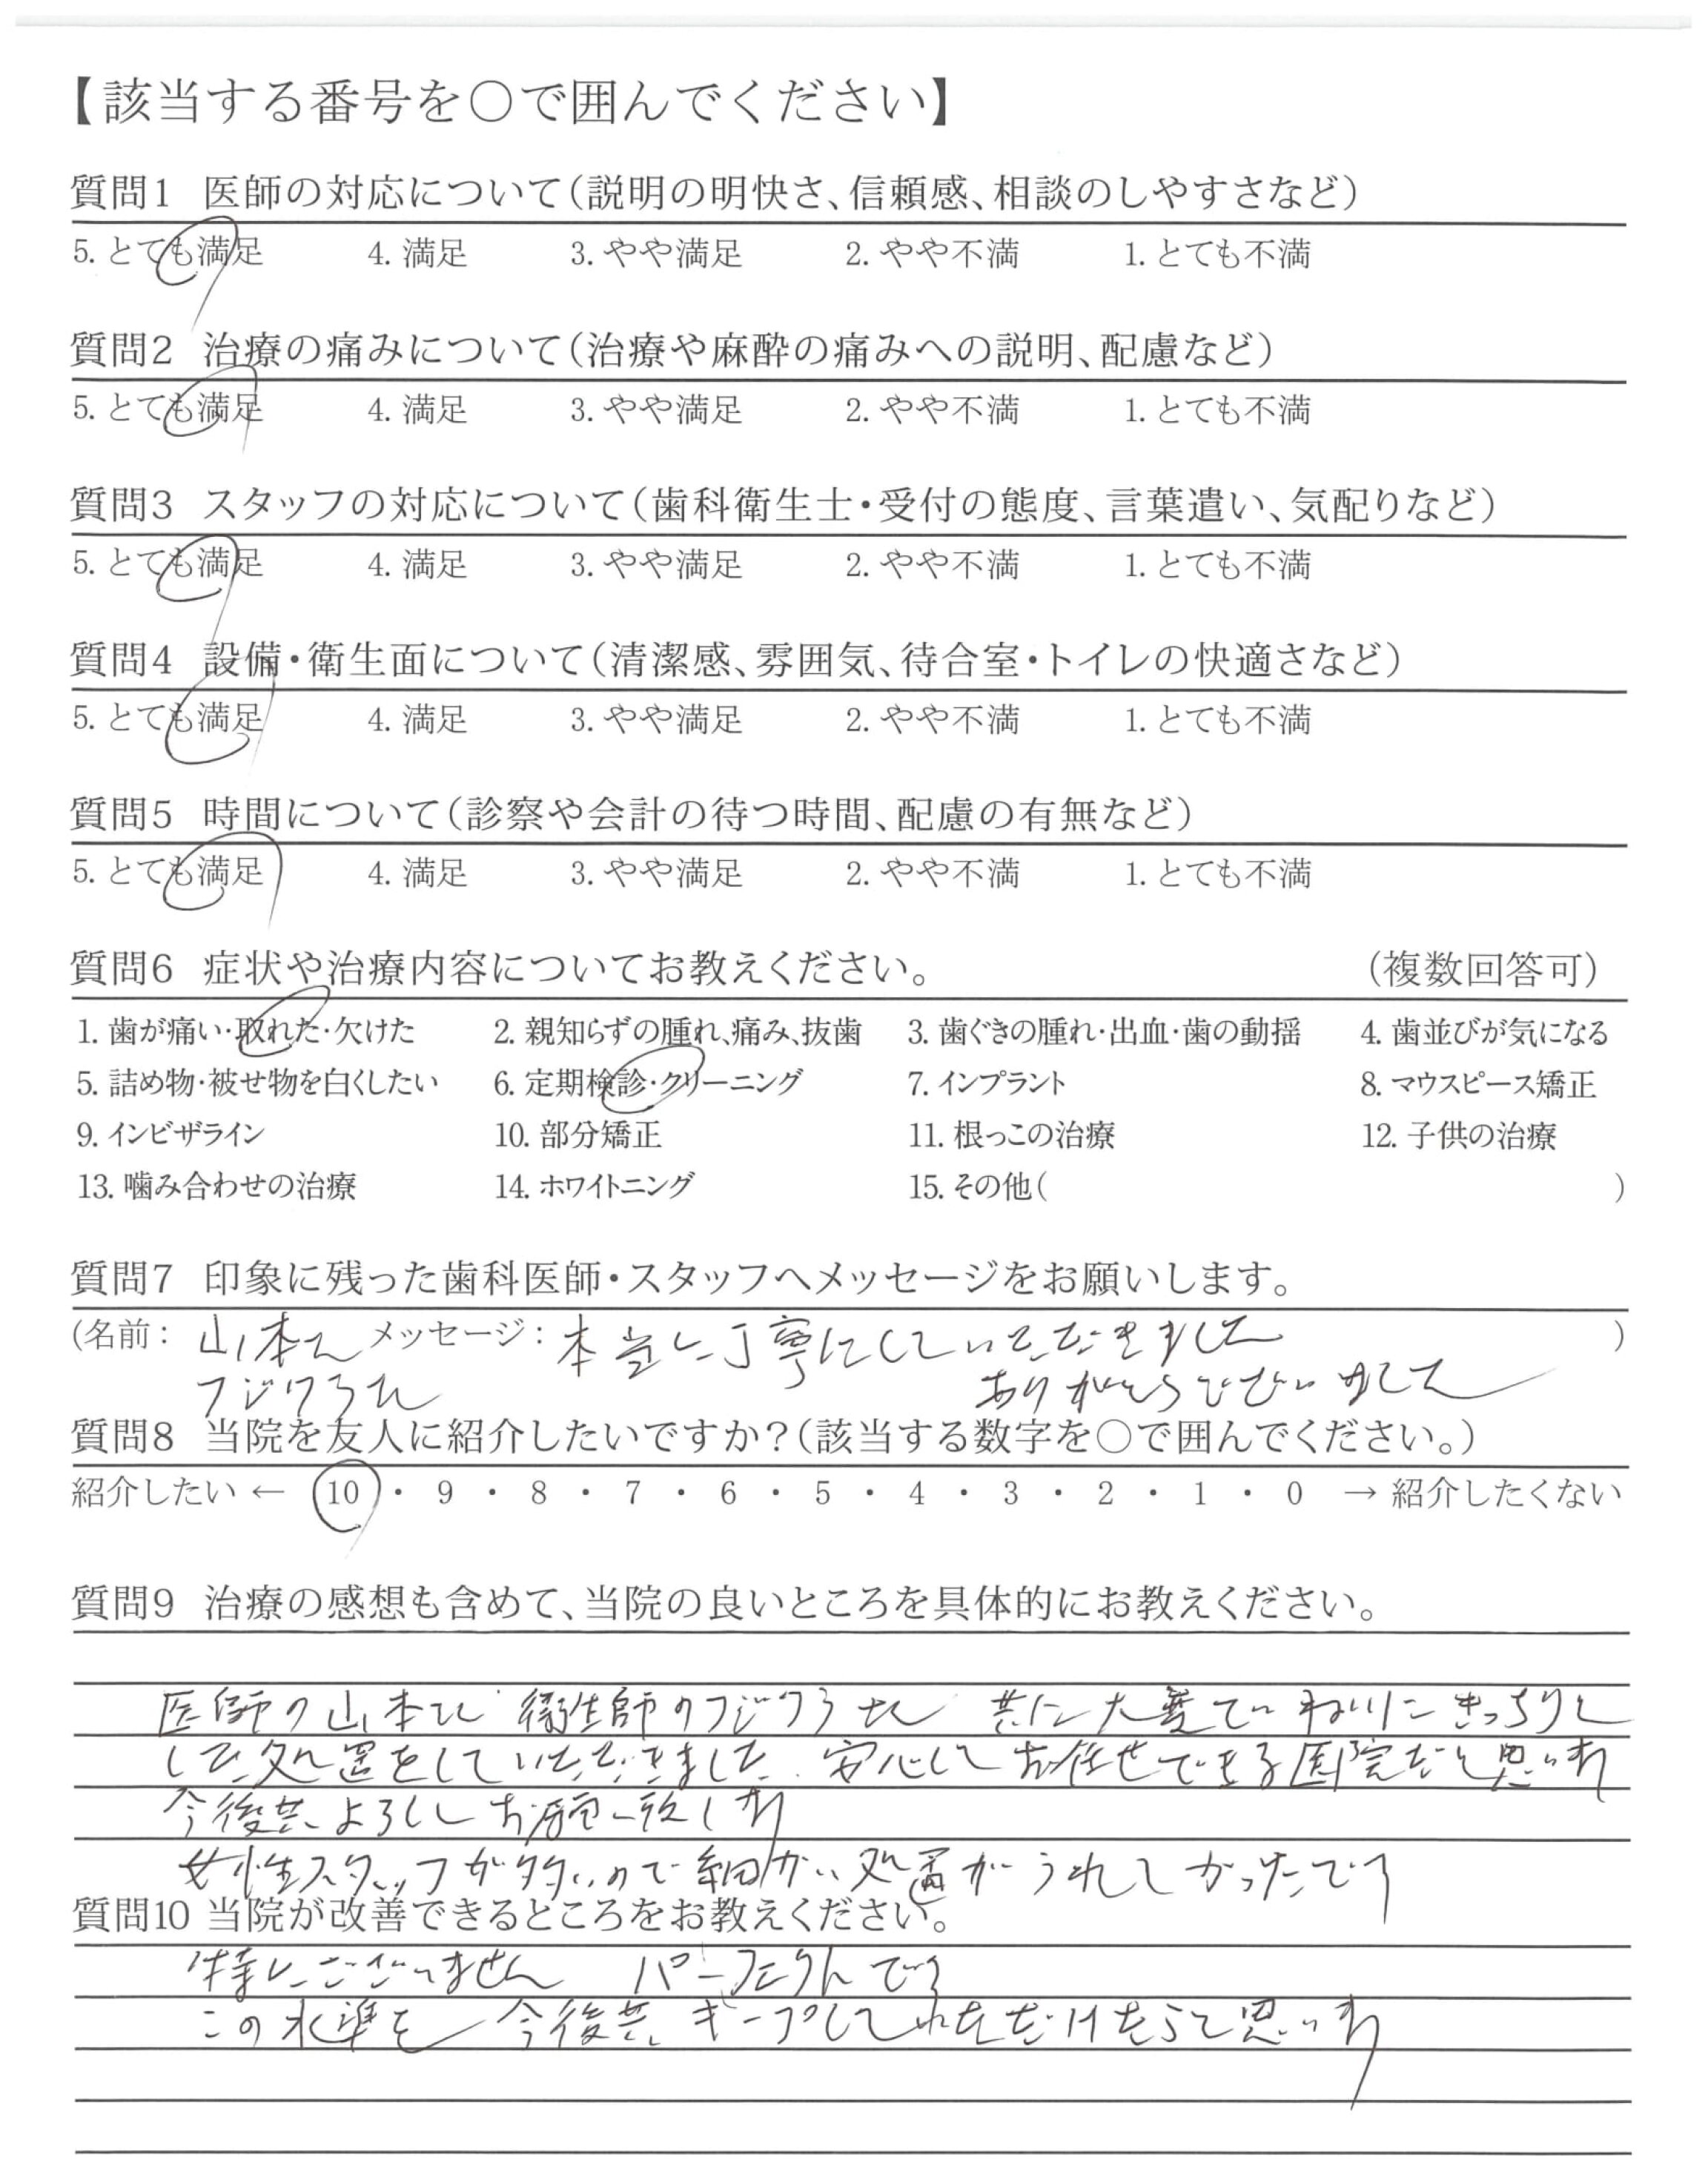 【該当する番号を○で囲んでください】
質問1 医師の対応について(説明の明快さ、信頼感、相談のしやすさなど)
5. とても満足 4. 満足 3. やや満足 2. やや不満 1. とても不満
質問2 治療の痛みについて(治療や麻酔の痛みへの説明、配慮など)
5. とても満足 4. 満足 3. やや満足 2. やや不満 1. とても不満
質問3 スタッフの対応について(歯科衛生士・受付の態度、言葉遣い、気配りなど)
5. とても満足 4. 満足 3. やや満足 2. やや不満 1. とても不満
質問4 設備・衛生面について(清潔感、雰囲気、待合室・トイレの快適さなど)
5. とても満足 4. 満足 3. やや満足 2. やや不満 1. とても不満
質問5 時間について(診察や会計の待つ時間、配慮の有無など)
5. とても満足 4. 満足 3. やや満足 2. やや不満 1. とても不満
質問6 症状や治療内容についてお教えください。 (複数回答可)
1. 歯が痛い・取れた・欠けた 2. 親知らずの腫れ、痛み、抜歯 3. 歯ぐきの腫れ・出血・歯の動揺 4. 歯並びが気になる
5. 詰め物・被せ物を白くしたい 6. 定期検診・クリーニング 7. インプラント 8. マウスピース矯正
9. インビザライン 10. 部分矯正 11. 根っこの治療 12. 子供の治療
13. 噛み合わせの治療 14. ホワイトニング 15. その他( )
質問7 印象に残った歯科医師・スタッフへメッセージをお願いします。
(名前: 山本さん メッセージ: 本当に丁寧にしていただきました )
フジワラさん ありがとうございました
質問8 当院を友人に紹介したいですか?(該当する数字を○で囲んでください。)
紹介したい ← 10 ・ 9 ・ 8 ・ 7 ・ 6 ・ 5 ・ 4 ・ 3 ・ 2 ・ 1 ・ 0 → 紹介したくない
質問9 治療の感想も含めて、当院の良いところを具体的にお教えください。
医師の山本さん 衛生師のフジワラさん 共に大変ていねいに きっちりと
した処置をしていただきました 安心してお任せできる医院だと思います
今後共よろしくお願い致します
女性スタッフが多いので細かい処置がうれしかったです
質問10 当院が改善できるところをお教えください。
特にございません パーフェクトです
この水準を 今後共 キープして いただけたらと思います